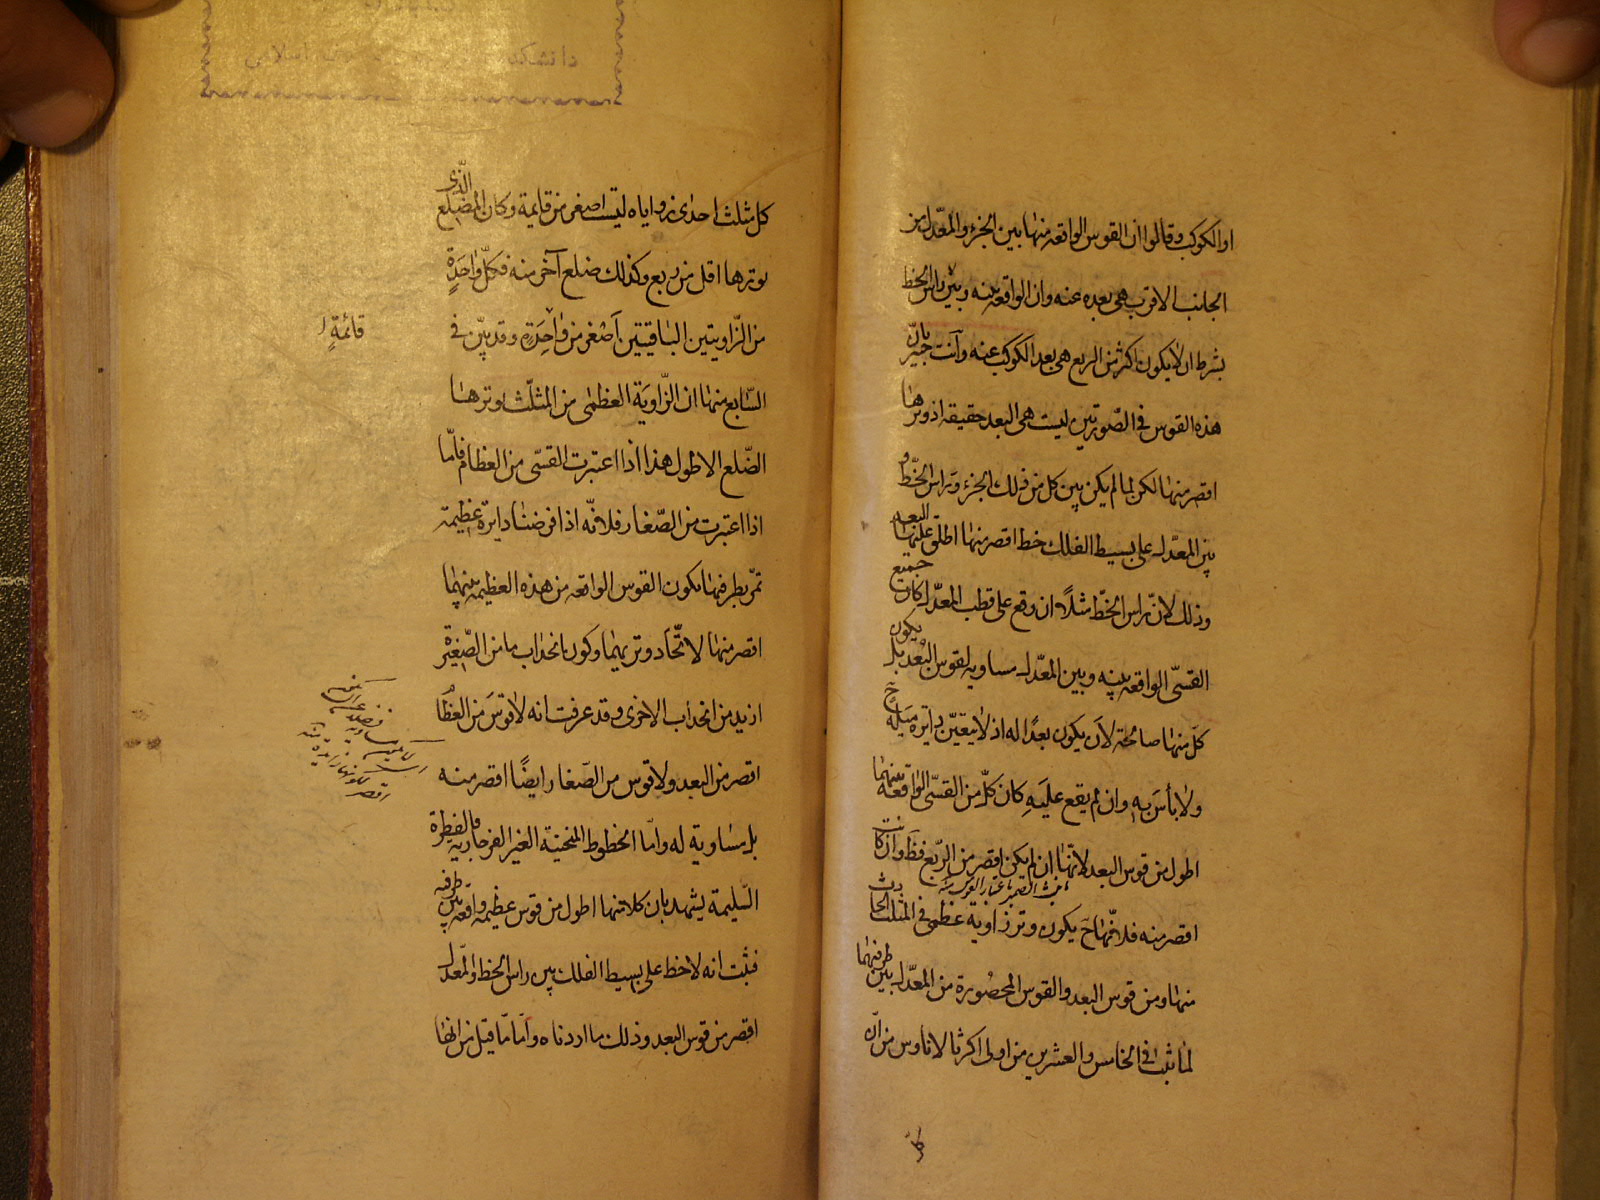 او الكوكب وقالوا ان القوس الواقعه منها بين الجزء والمعدل من
الجانب الاقرب هى بعده عنه وان الواقعه منه وبين راس الخط
بشرط ان لا يكون اكثر من الربع هى بعد الكوكب عنه وانت خبير بان
هذه القوس فى الصّورتين ليست هى البعد حقيقه اذ وترها
اقصر منها لكن لما لم يكن بين كل من ذلك الجزء وراس الخطّ و
بين المعدّل على بسيط الفلك خط اقصر منها اطلق عليها البعد
وذلك لانّ راس الخطّ مثلاً ان وقع على قطب المعدّل كان جميع
القسّى الواقعه بينه وبين المعدّل مساويه لقوس البُعد بل يكون
كلّ منها صالحة لأن يكون بعدًا له اذ لا يتعيّن ح دايرة ميله
ولا بأس به وان لم يقع عليه كان كلّ من القسّى الواقعه بينهما
اطول من قوس البعد لانّها ان لم يكن اقصر من الرّبع فظ وان كانت
اقصر منه فلانّها ح يكون وتر زاوية عظمى فى المثلث الحادث
منها ومن قوس البعد والقوس المحصورة من المعدّل بين طرفيهما
لما ثبت فى الخامس والعشرين من اولى اكر ثالاناوس من انّ
كل
كل مثلث احدى زواياه ليست اصغر من قايمة وكان الضلع الّذى
يوترها اقل من ربع وكذلك ضلع آخر منه فكلّ واحدةٍ
من الزّاويتين الباقيتين اَصْغر من واحِدة وقد بيّن فى
قائمةٍ
السّابع منها ان الزّاوية العظمى من المثلّث وترها
الضّلع الاطول هذا اذا اعتبرت القسّى من العظام فامّا
اذا اعتبرت من الصّغار فلانّه اذا فرضنا دايرة عظيمة
تمرّ بطرفيها يكون القوس الواقعه من هذه العظيمه بينهما
اقصر منها لاتّحاد وتريهما وكون انحداب ما من الصّغيرة
ازيد من انحداب الاخرى وقد عرفت انه لا قوسَ من العظا
اقصر من البعد ولا قوس من الصّغار ايضًا اقصر منه
بل مساوية له وامّا الخطوط المنحنية الغير الفرجارية فالفطرة
السّليمة يشهد بان كلا منها اطول من قوس عظيمة واقعة بين طرفيه
فثبت انه لا خط على بسيط الفلك بين راس الخط والمعدّل
اقصر من قوس البعد وذلك ما اردناه وامّا ما قيل من انها